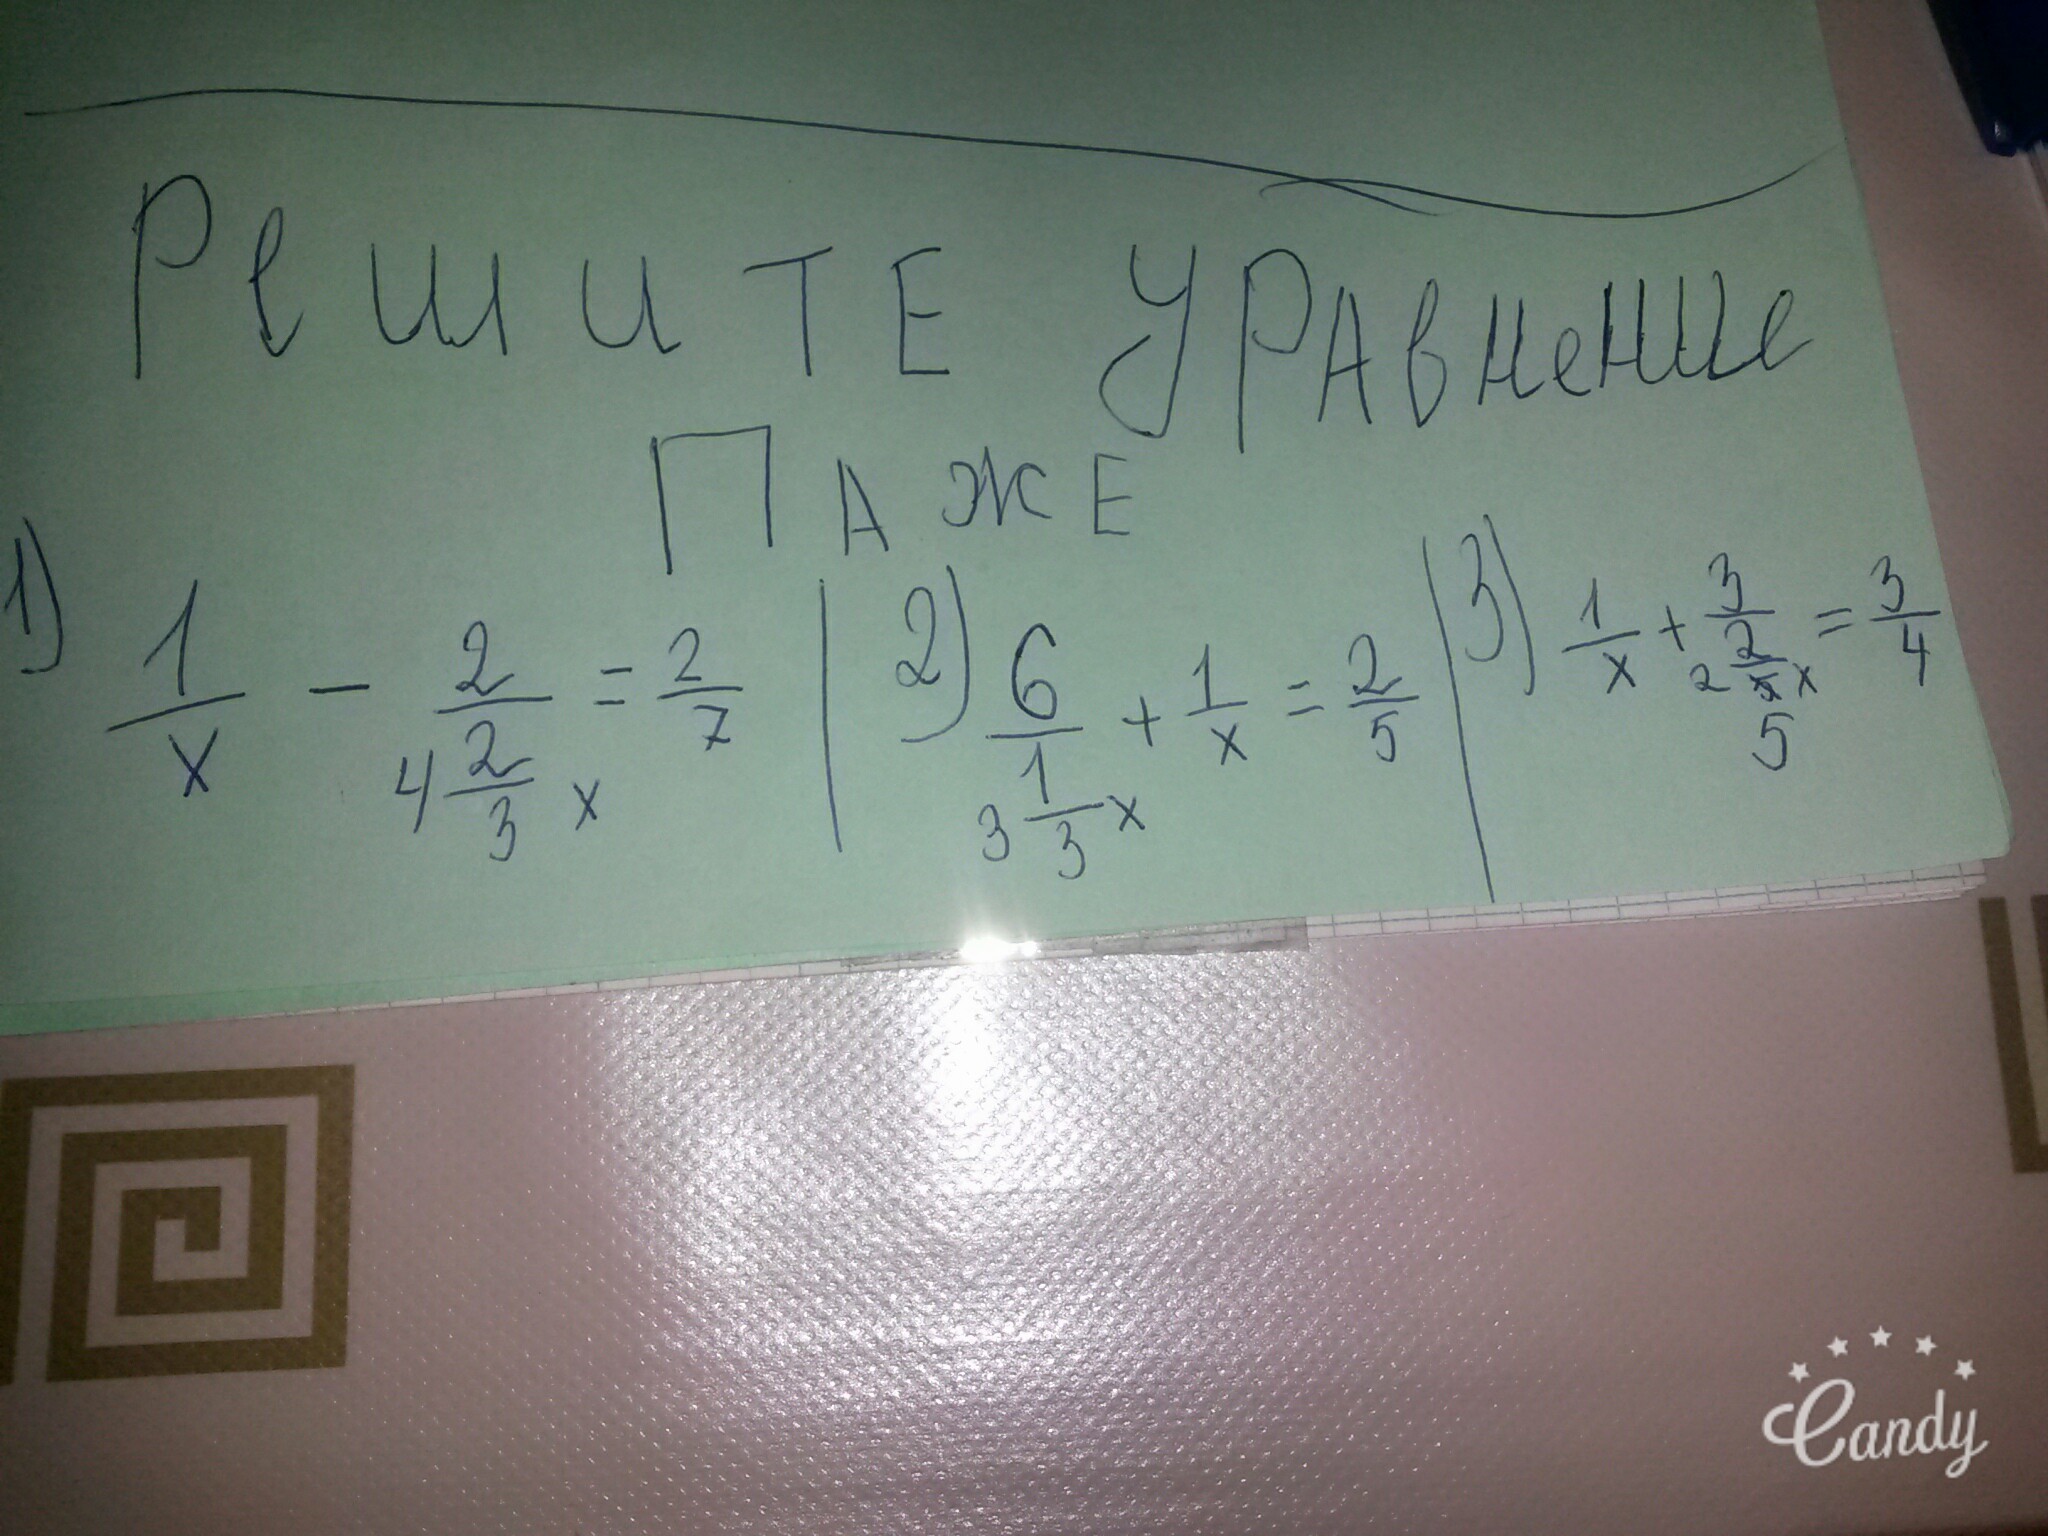 Решите уравнение
Паже
1) 1/x - 2/(4 2/3 x) = 2/7 | 2) 6/(3 1/3 x) + 1/x = 2/5 | 3) 1/x + 3/(2 2/5 x) = 3/4
Candy